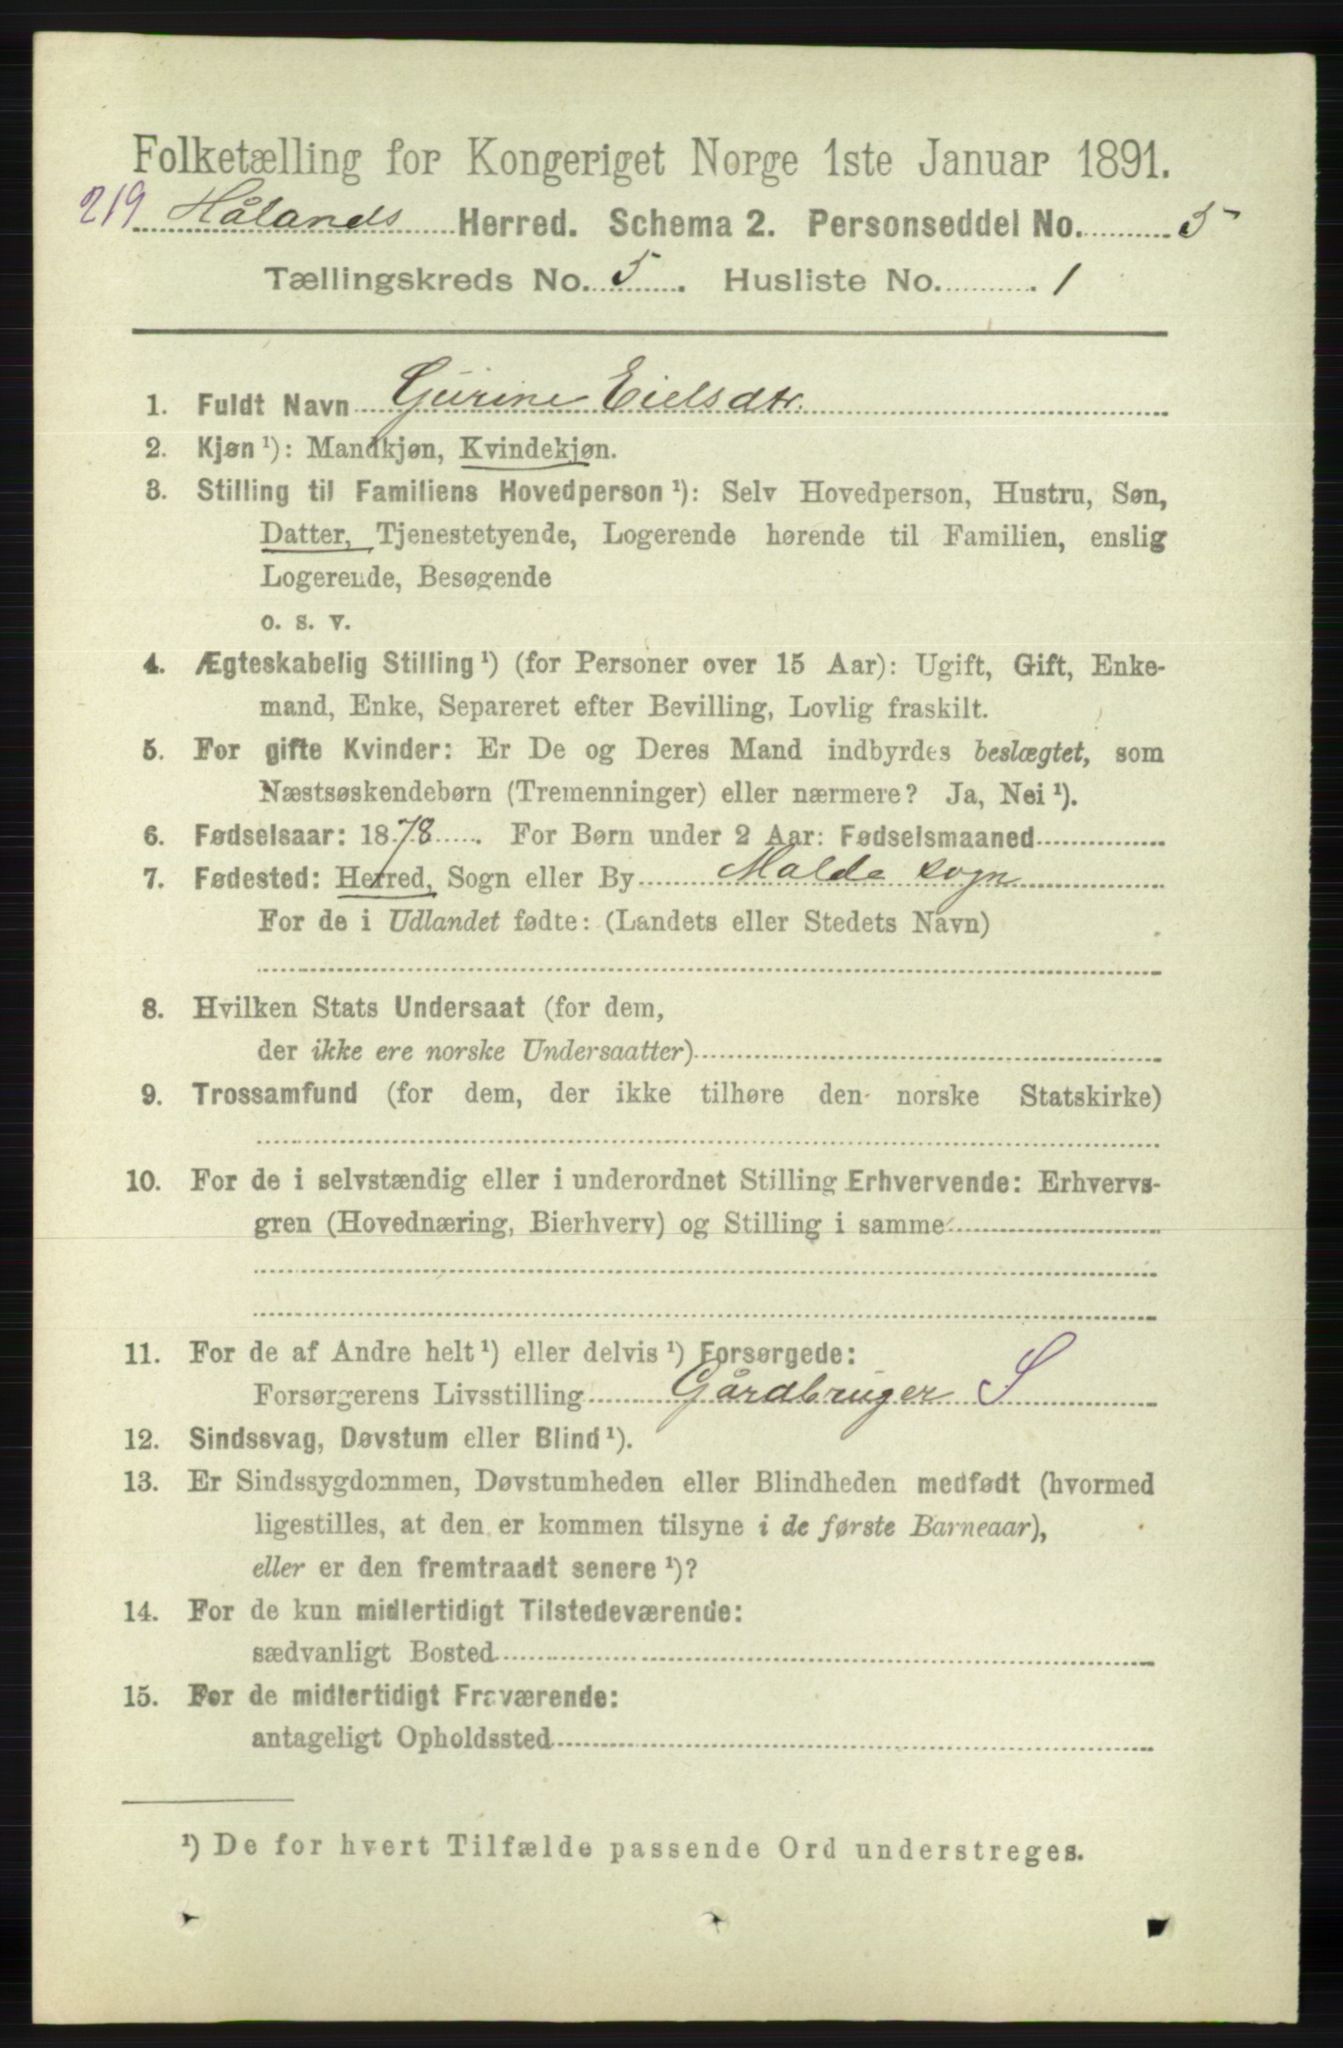 Folketælling for Kongeriget Norge 1ste Januar 1891.
219 Hålands Herred. Schema 2. Personseddel No. 5
Tællingskreds No. 5. Husliste No. 1
1. Fuldt Navn Gurine Eielsdtr.
2. Kjøn ¹): Mandkjøn, Kvindekjøn.
3. Stilling til Familiens Hovedperson ¹): Selv Hovedperson, Hustru, Søn,
Datter, Tjenestetyende, Logerende hørende til Familien, enslig
Logerende, Besøgende
o. s. v.
4. Ægteskabelig Stilling ¹) (for Personer over 15 Aar): Ugift, Gift, Enke-
mand, Enke, Separeret efter Bevilling, Lovlig fraskilt.
5. For gifte Kvinder: Er De og Deres Mand indbyrdes beslægtet, som
Næstsøskendebørn (Tremenninger) eller nærmere? Ja, Nei ¹).
6. Fødselsaar: 1878. For Børn under 2 Aar: Fødselsmaaned
7. Fødested: Herred, Sogn eller By Malde sogn
For de i Udlandet fødte: (Landets eller Stedets Navn)
8. Hvilken Stats Undersaat (for dem,
der ikke ere norske Undersaatter)
9. Trossamfund (for dem, der ikke tilhøre den norske Statskirke)
10. For de i selvstændig eller i underordnet Stilling Erhvervende: Erhvervs-
gren (Hovednæring, Bierhverv) og Stilling i samme
11. For de af Andre helt ¹) eller delvis ¹) Forsørgede:
Forsørgerens Livsstilling Gårdbruger S
12. Sindssvag, Døvstum eller Blind ¹).
13. Er Sindssygdommen, Døvstumheden eller Blindheden medfødt (hvormed
ligestilles, at den er kommen tilsyne i de første Barneaar),
eller er den fremtraadt senere ¹)?
14. For de kun midlertidigt Tilstedeværende:
sædvanligt Bosted
15. For de midlertidigt Fraværende:
antageligt Opholdssted
¹) De for hvert Tilfælde passende Ord understreges.